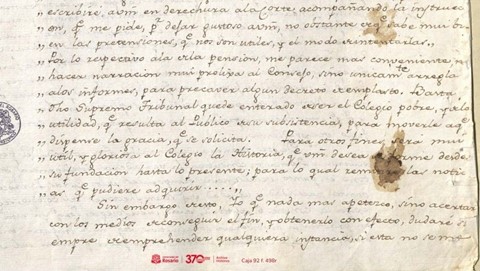 „ escribire; avm̃ en derechura ala Corte, acompañando la instrucc
„ on, q.e me pide, p.r dejar gustoso avm̃, no obstante q.e sabe mui b.n
„ en las pretensiones, q.e nos son utiles, y el modo
„ Por lo respectivo ala pension, me parece mas conveniente, n
„ hacer narracion mui prolixa al Consejo, sino unicam.te arregla
„ alos informes, para precaver algun decreto Basta
„ Supremo Tribunal quede enterado ser el Colegio pobre, y
„ utilidad, q.e resulta al Publico su subsistencia, para moverle aq.e
„ dispense la gracia, q.e se solicita. Para otros fines, sera mui
„ util, y gloriosa al Colegio la Historia, q.e vm̃ desea desde
„ su fundacion hasta lo presente; para lo qual las notic
„ as q.e pudiere adquirir....„
Sin embargo esto, Yo q.e nada mas apetezco, sino acertar
con los medios conseguir el fin, y obtenerlo con efecto, dudaré si
empre, emprehender qualquiera instancia, si esta no se me
Universidad del Rosario
370 años
Archivo Histórico
Caja 92 f. 496r